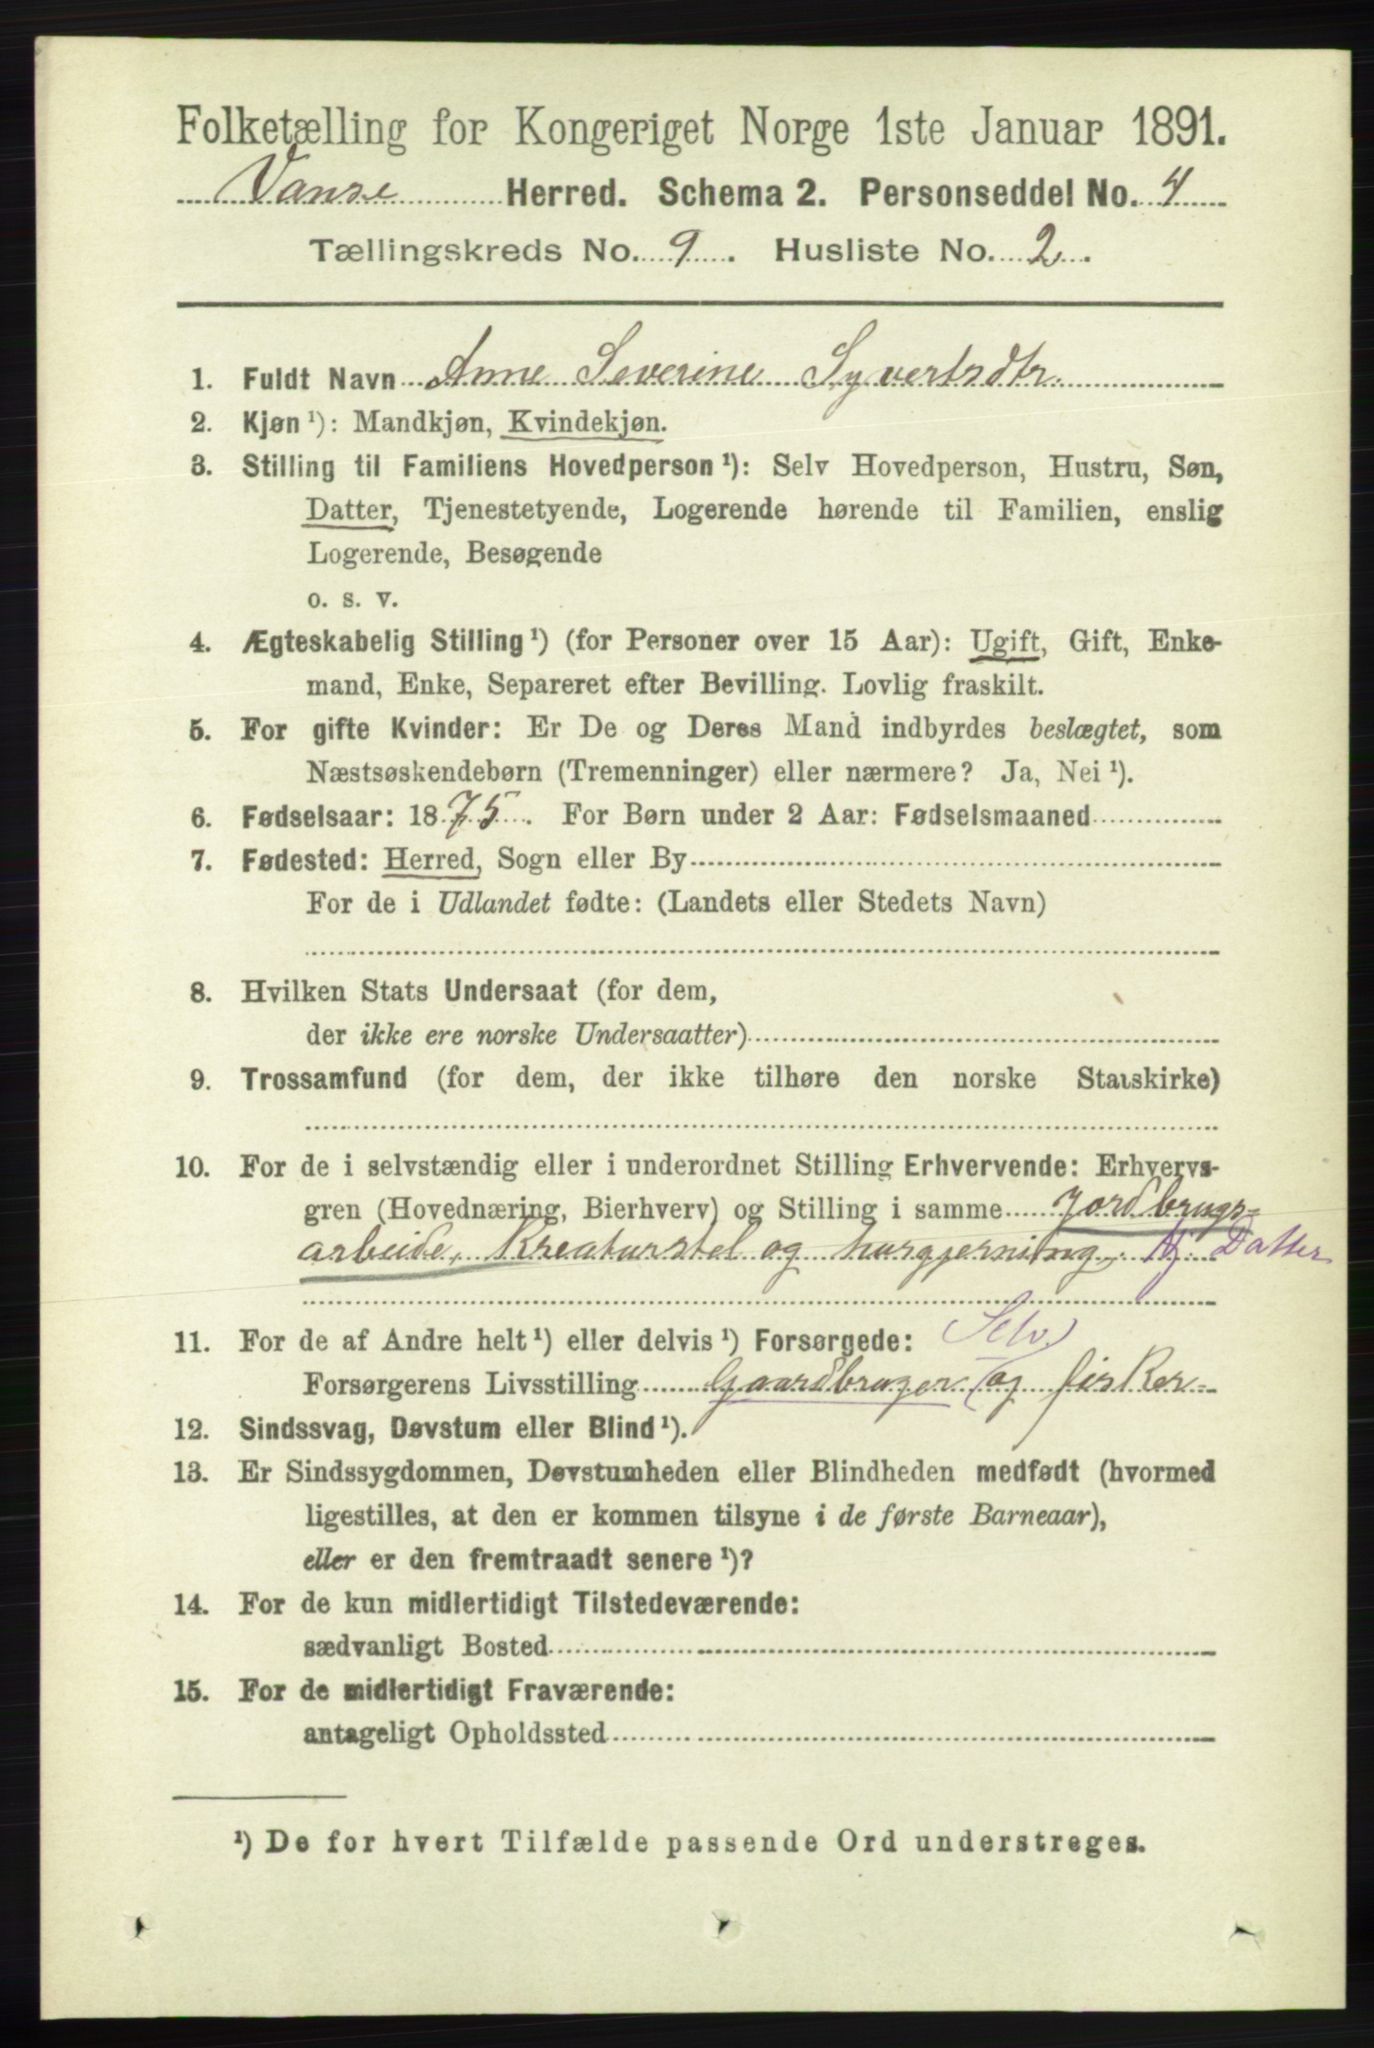 Folketælling for Kongeriget Norge 1ste Januar 1891.
Vanse Herred. Schema 2. Personseddel No. 4
Tællingskreds No. 9. Husliste No. 2.
1. Fuldt Navn Anne Severine Syvertsdtr.
2. Kjøn ¹): Mandkjøn, Kvindekjøn.
3. Stilling til Familiens Hovedperson ¹): Selv Hovedperson, Hustru, Søn,
Datter, Tjenestetyende, Logerende hørende til Familien, enslig
Logerende, Besøgende
o. s. v.
4. Ægteskabelig Stilling ¹) (for Personer over 15 Aar): Ugift, Gift, Enke-
mand, Enke, Separeret efter Bevilling. Lovlig fraskilt.
5. For gifte Kvinder: Er De og Deres Mand indbyrdes beslægtet, som
Næstsøskendebørn (Tremenninger) eller nærmere? Ja, Nei ¹).
6. Fødselsaar: 1875. For Børn under 2 Aar: Fødselsmaaned
7. Fødested: Herred, Sogn eller By
For de i Udlandet fødte: (Landets eller Stedets Navn)
8. Hvilken Stats Undersaat (for dem,
der ikke ere norske Undersaatter)
9. Trossamfund (for dem, der ikke tilhøre den norske Statskirke)
10. For de i selvstændig eller i underordnet Stilling Erhvervende: Erhvervs-
gren (Hovednæring, Bierhverv) og Stilling i samme Jordbrugs-
arbeide, Kreaturstel og husgjerning. Hj. Datter
11. For de af Andre helt ¹) eller delvis ¹) Forsørgede: Selv
Forsørgerens Livsstilling Gaardbruger (og fisker-
12. Sindssvag, Døvstum eller Blind ¹).
13. Er Sindssygdommen, Døvstumheden eller Blindheden medfødt (hvormed
ligestilles, at den er kommen tilsyne i de første Barneaar),
eller er den fremtraadt senere ¹)?
14. For de kun midlertidigt Tilstedeværende:
sædvanligt Bosted
15. For de midlertidigt Fraværende:
antageligt Opholdssted
¹) De for hvert Tilfælde passende Ord understreges.